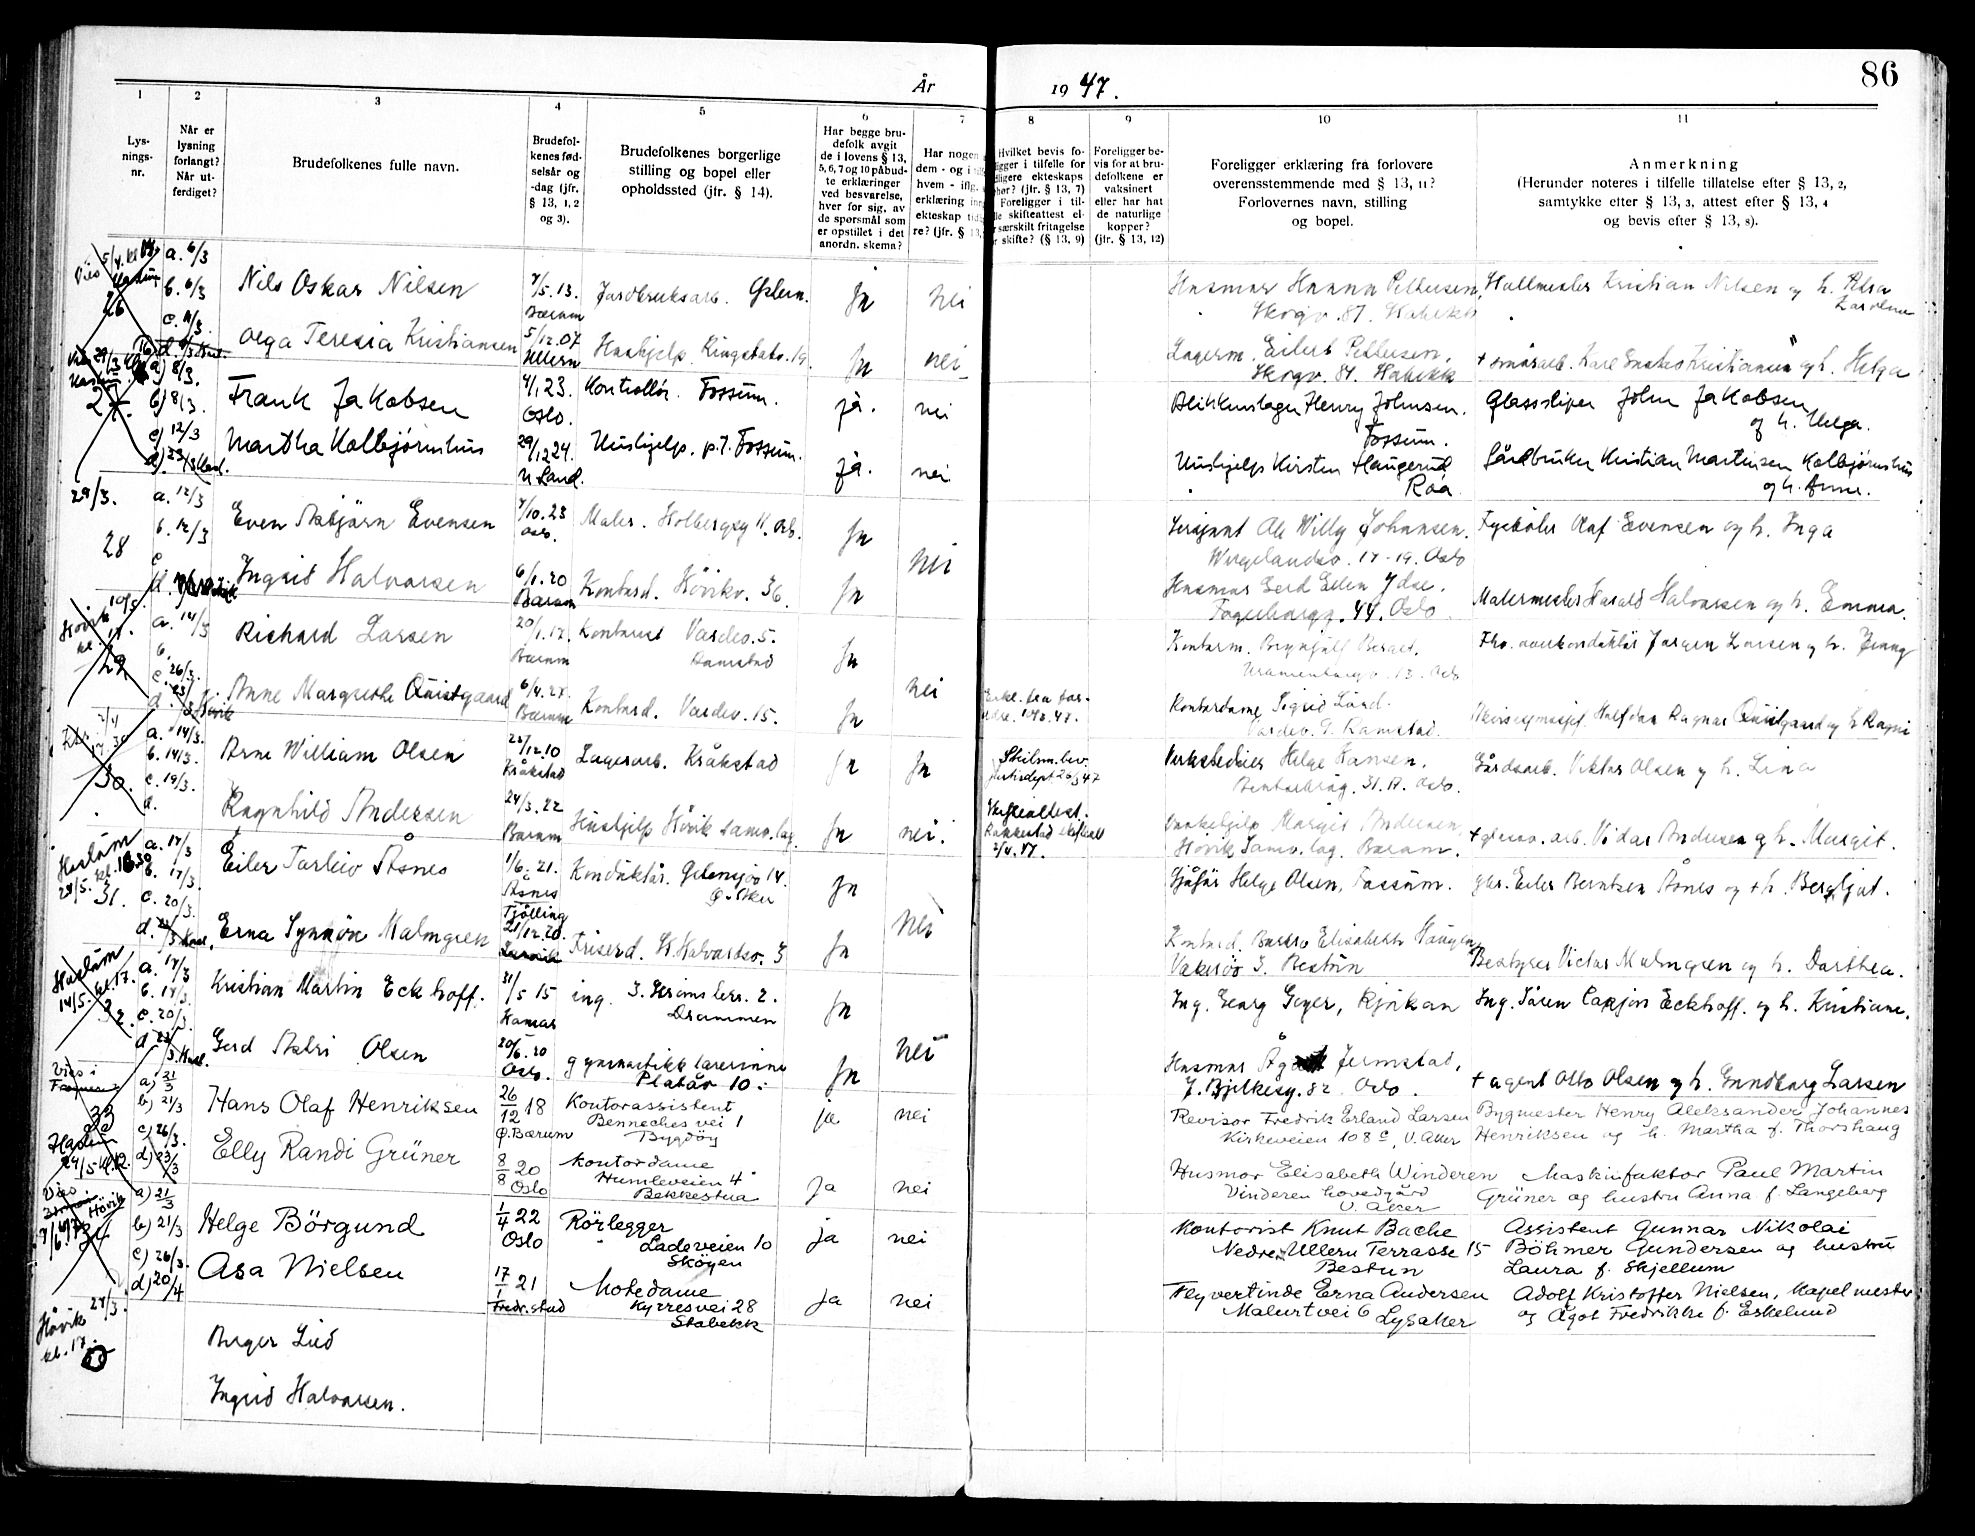 År 1947.
86
1 2 3 4 5 6 7 8 9 10 11
Lys-
nings-
nr.
Når er
lysning
forlangt?
Når ut-
ferdiget?
Brudefolkenes fulle navn.
Brudefol-
kenes fød-
selsår og
-dag (jfr.
§ 13, 1, 2
og 3).
Brudefolkenes borgerlige
stilling og bopel eller
opholdssted (jfr. § 14).
Har begge bru-
defolk avgit
de i lovens § 13,
5, 6, 7 og 10 påbud-
te erklæringer
ved besvarelse,
hver for sig, av
de spørsmål som
er opstillet i det
anordn. skema?
Har nogen
dem - og i
hvem - iflg.
erklæring
ekteskap tid
re? (jfr. § 13,
Hvilket bevis fo-
igger i tilfelle for
idligere ekteskaps
hør? (jfr. § 13, 7)
Foreligger i til-
le skifteattest el-
særskilt fritagelse
skifte? (§ 13, 9)
Foreligger be-
vis for at bru-
defolkene er
vaksinert
eller har hat
de naturlige
kopper?
(jfr. § 13, 12)
Foreligger erklæring fra forlovere
overensstemmende med § 13, 11?
Forlovernes navn, stilling
og bopel.
Anmerkning
(Herunder noteres i tilfelle tillatelse efter § 13, 2,
samtykke efter § 13, 3, attest efter § 13, 4
og bevis efter § 13, 8).
26
a. 6/3
b. 6/3
Nils Oskar Nilsen
7/5.13.
Bærum
Jordbruksarb.
Ja
nei
Husmor Hanna Pettersen,
Skogv. 87. Stabekk
Hallmester Kristian Nilsen og h.
Olga Teresia Kristiansen
5/12.07
Ullern
Hushjelp. Ringstabv. 19.
Ja
nei
Lagerm. Eilert Pettersen.
Skogv. 87. Stabekk
Kristiansen og h. Helga
27.
a) 8/3.
b) 8/3.
c) 12/3
Frank Jakobsen
4/1.23.
Oslo.
Kontrollør. Fossum.
ja.
nei
Blikkenslager Henry Johnsen.
Fossum.
Glassliper John Jakobsen
og h. Helga.
Martha Kolbjørnshus
29/12 24.
N Land.
Hushjelp. p.t. Fossum.
ja.
nei
Hushjelp Kirsten Haugerud
Røa.
Gårdbruker Kristian Martinsen Kolbjørnshus
og h. Anne.
29/3.
28
a. 12/3
b. 12/3
c
Even Asbjørn Evensen
7/10.23
Oslo.
Maler. Holbergsg 11. Oslo.
Ja
nei
Sersjant Ole Willy Johansen.
Wergelandsv. 17-19. Oslo
Olaf Evensen og h. Inga
Ingrid Halvorsen
6/1.20
Bærum
Kontord. Høvikv. 36.
Ja
Husmor Gerd Ellen Ydse.
Fagerborgg. 44. Oslo
Malermester Harald Halvorsen og h. Emma.
Høvik 10/5.
kl. 17.
29
a. 14/3
b.
c. 26/3.
Richard Larsen
20/1.17.
Bærum
Kontorist Vardev. 5.
Ramstad
Ja
nei
Kontorm.
Uranienborgv. 13. Oslo
Jørgen Larsen og h. Jenny
Anne Margrethe Quistgaard
6/4.27.
Bærum
Kontord. Vardev. 15.
Ja
Kontordame Sigrid Lund.
Vardev. 9. Ramstad.
Halfdan Ragnar Quistgaard og h Ragni
30.
a. 14/3.
b. 14/3.
c. 19/3.
d.
Arne William Olsen
22/12.10
Kråkstad
Lagerarb. Kråkstad
Ja
Ja
Skilsm. bev.
Helge Hansen.
31.A. Oslo.
Gårdsarb. Viktor Olsen og h. Lina
Ragnhild Andersen
24/3.22
Bærum
Hushjelp Høvik samv. lag
Ja
nei.
Skifteattest.
Rakkestad skifterett
2/4.47.
Margit Andersen,
Høvik Samv. lag. Bærum.
arb. Vidar Andersen og h. Margit.
Haslum
28/5. kl. 16.30
31.
a. 17/3
b. 17/3.
c. 20/3.
Eiler Torleiv Åsnes
1/6.21.
Åsnes
Konduktør. 14.
Ø. Aker
Ja
nei
Sjåfør Helge Olsen, Fossum.
gbr. Eiler Berntsen Åsnes og +h. Bergljot.
Erna Synnøve Malmgren
Tjølling
21/12.20.
Larvik
Friserd. St. Halvardsv. 3
Ja
Kontord. Elisabeth Haugen
Vækerøv 3. Bestun
Bestyrer Victor Malmgren og h. Dorthea.
Haslum
14/5. kl. 17.
32.
a. 17/3
b. 17/3.
c. 20/3.
Kristian Martin Eckhoff.
31/5 15
Hamar
ing. 3. Strøms terr. 2.
Drammen
Ja
nei
Ing. Georg Geyer, Rjukan
Ing. Søren Eckhoff. og h. Kristiane.
Gerd Astri Olsen
20/6.20
Oslo.
gymnastikk lærerinne
Platåv 10.
Ja
Husmor Jermstad,
J. Bjelkesg. 82. Oslo.
+ agent Otto Olsen og h. Gundborg Larsen
Vies i
33
Haslum
24/5 kl. 12.
a) 21/3
b) 21/3
c) 26/3.
Hans Olaf Henriksen
26/12 18
Ø. Bærum
Kontorassistent
Benneches vei 1
Bygdøy
ja
nei
Revisor Fredrik Erland Larsen
Kirkeveien 108 c, V. Aker
Bygmester Henry Aleksander Johannes
Henriksen og h. Martha f. Thorshaug
Elly Randi Grüner
8/8 20
Oslo
Kontordame
Humleveien 4
Bekkestua
ja
nei
Husmor Elisabeth Winderen
Vinderen hovedgård
V. Aker
Maskinfaktor Paul Martin
Grüner og hustru Anna f. Langeberg
Vies i
Høvik
34
a) 21/3
b) 21/3
c) 26/3.
d) 20/4
Helge Börgund
1/4 22
Oslo
Rørlegger
Ladeveien 10
Skøyen
ja
nei
Kontorist Knut Bache
Nedre Ullern Terrasse 15
Bestun
Assistent Gunnar Nikolai
Böhmer Gundersen og hustru
Laura f. Skjellum
Åsa Nielsen
17/1 21
Fredr.stad
Motedame
Kyrresvei 28
Stabekk
ja
nei
Flyvertinde Erna Andersen
Malurtvei 6 Lysaker
Adolf Kristoffer Nielsen, Kapelmester
og Ågot Fredrikke f. Eskelund
Høvik 27/3.
kl. 17.
Birger Lied
Ingrid Halvorsen.